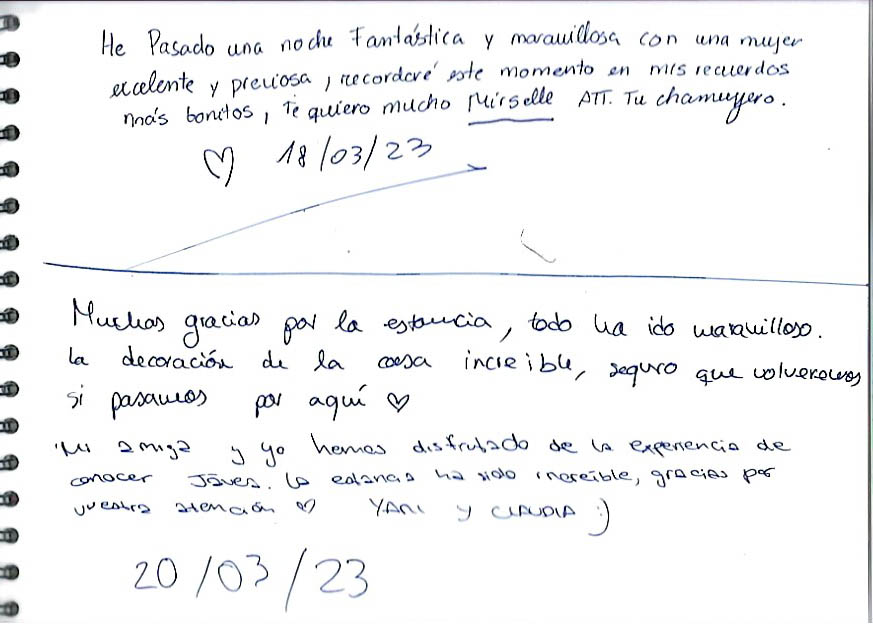 He Pasado una noche Fantástica y maravillosa con una mujer
excelente y preciosa, recordaré este momento en mis recuerdos
más bonitos, Te quiero mucho Mirselle ATT. Tu chamuyero.
♡ 18/03/23
Muchas gracias por la estancia, todo ha ido maravilloso.
La decoración de la casa increible, seguro que volveremos
si pasamos por aquí ♡
Mi amiga y yo hemos disfrutado de la experiencia de
conocer Jávea. La estancia ha sido increíble, gracias por
vuestra atención ♡ YANI y CLAUDIA :)
20/03/23